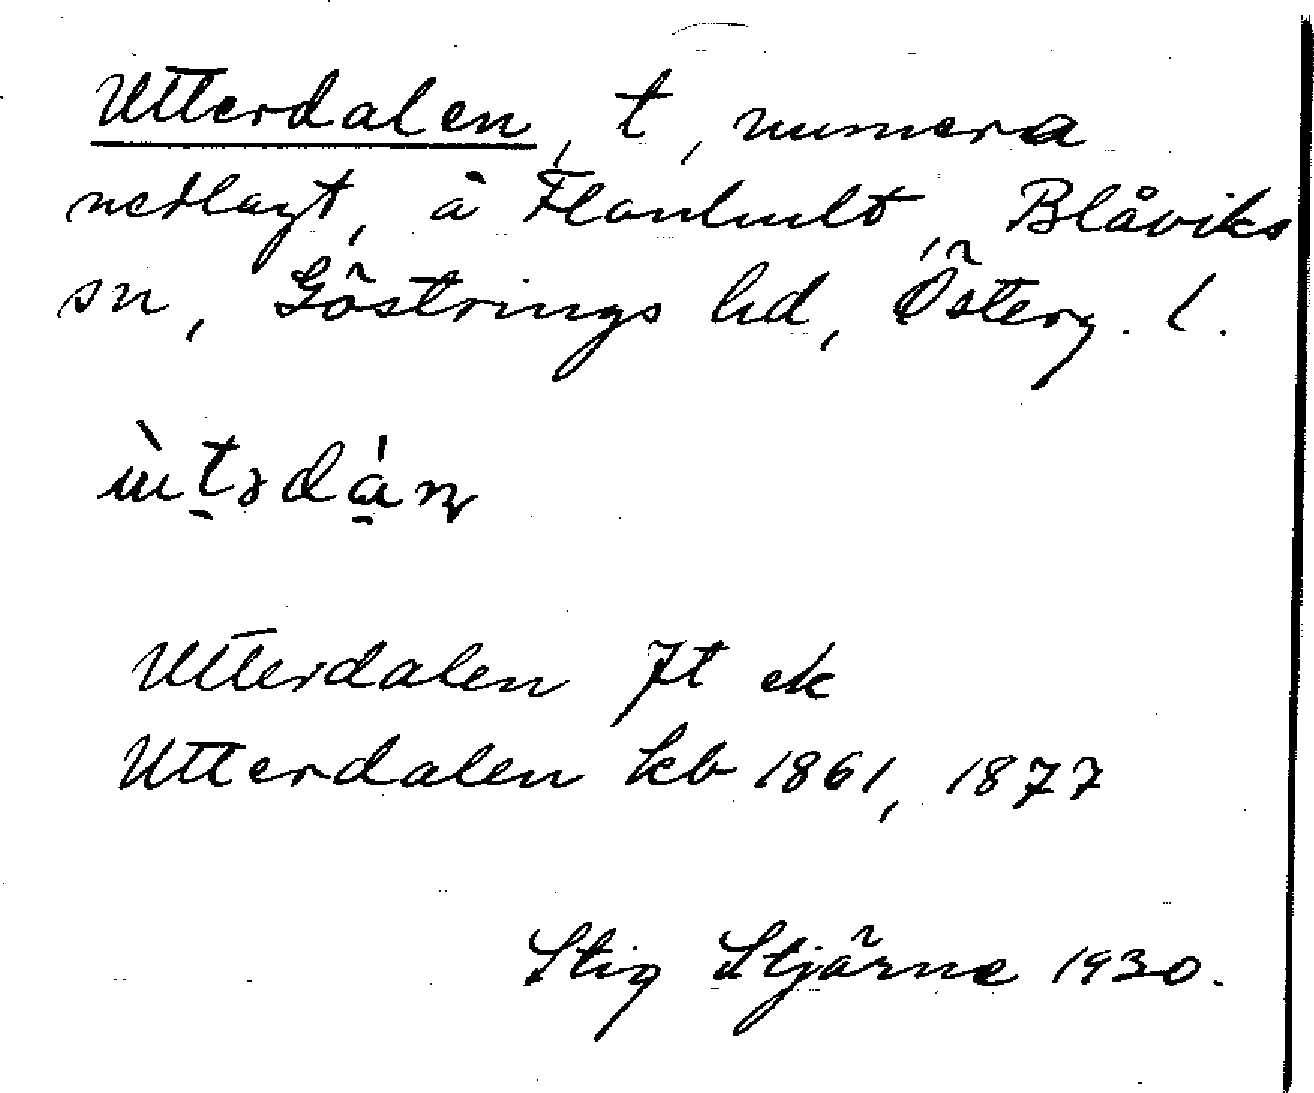 Utterdalen, t, numera
nedlagt, å Flanhult, Blåviks
sn, Göstrings hd, Österg. l.
Utterdalen Jt ek
Utterdalen kb 1861, 1877
Stig Stjärne 1930.